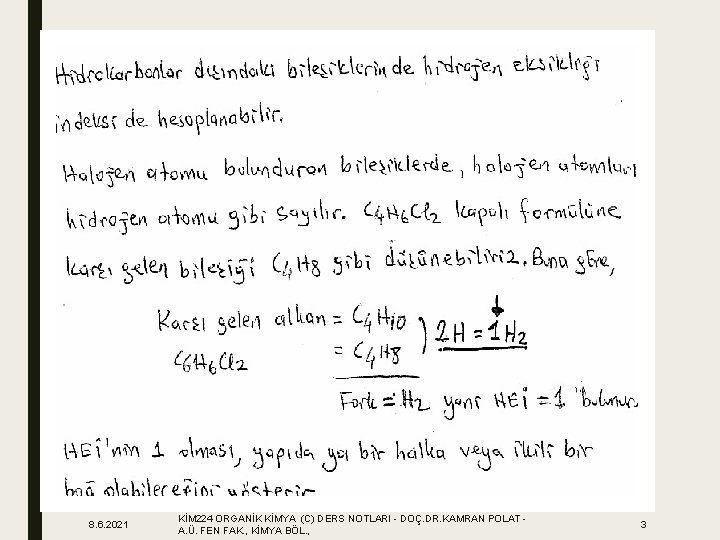 Hidrokarbonlar dışındaki bileşiklerin de hidrojen eksikliği
indeksi de hesaplanabilir.
Halojen atomu bulunduran bileşiklerde, halojen atomları
hidrojen atomu gibi sayılır. C4H6Cl2 kapalı formülüne
karşı gelen bileşiği C4H8 gibi düşünebiliriz. Buna göre,
Karşı gelen alkan = C4H10 ) 2H = 1H2
C6H6Cl2 = C4H8
Fark = H2 yani HEİ = 1 bulunur
HEİ'nin 1 olması, yapıda ya bir halka veya ikili bir
bağ olabileceğini gösterir
8.6.2021
KİM224 ORGANİK KİMYA (C) DERS NOTLARI - DOÇ.DR.KAMRAN POLAT -
A.Ü. FEN FAK., KİMYA BÖL.,
3